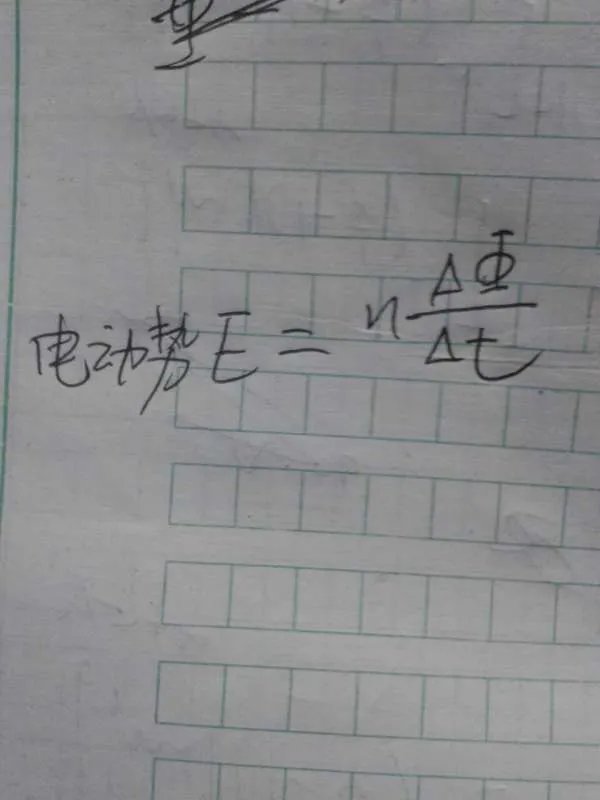 电动势E = n ΔΦ/Δt